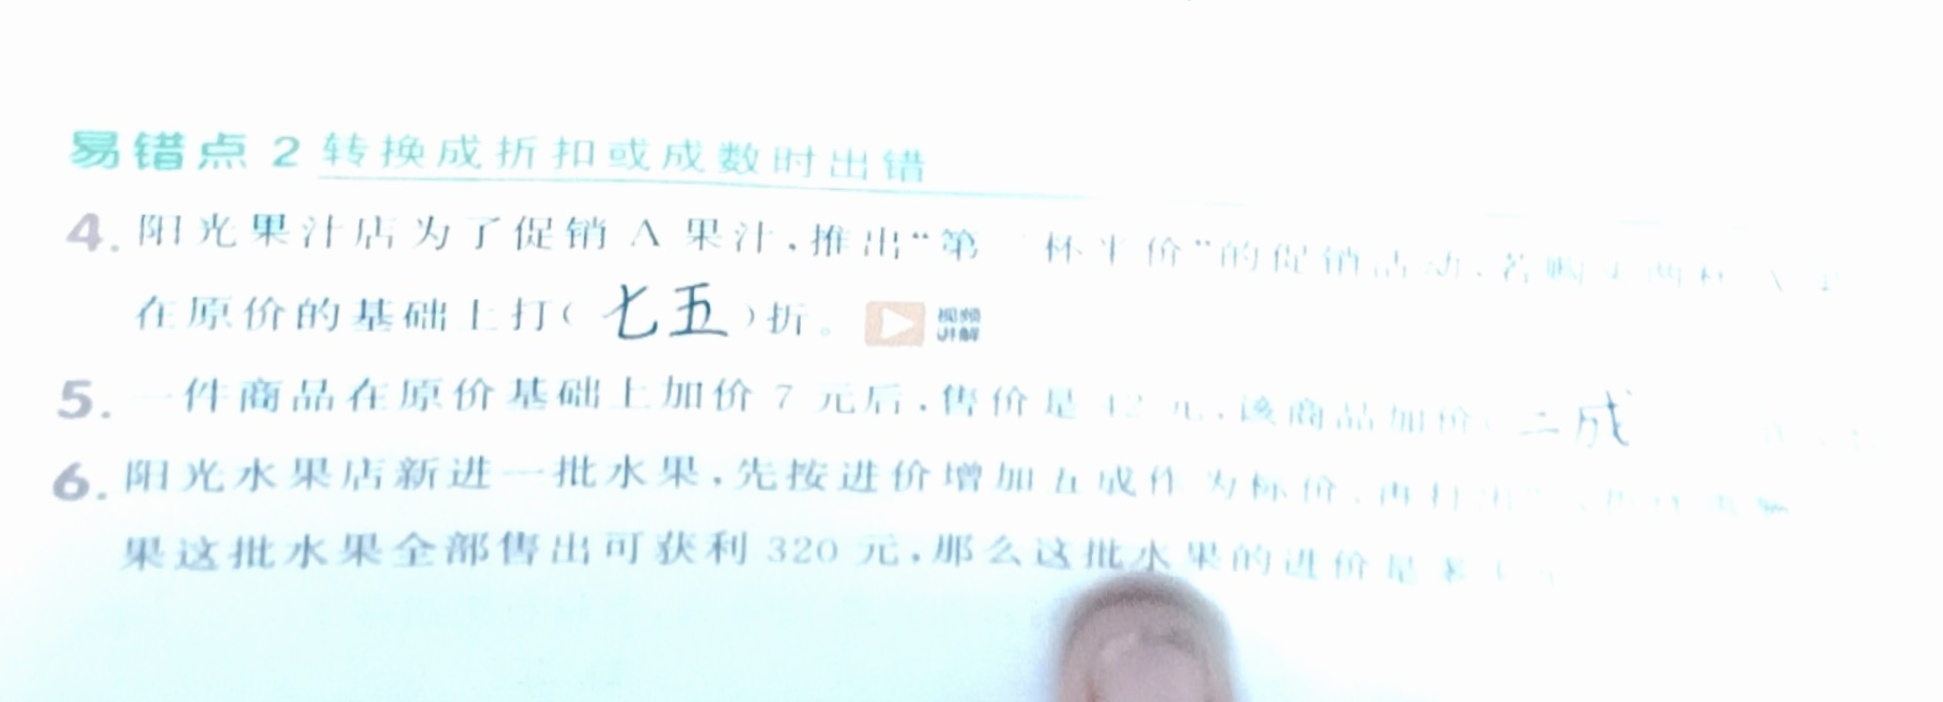 易错点 2 转换成折扣或成数时出错
4. 阳光果汁店为了促销 A 果汁,推出“第 杯半价”的促销活动,若购买两杯
在原价的基础上打( 七五 )折。 视频讲解
5. 一件商品在原价基础上加价 7 元后,售价是 42 元,该商品加价( 二成
6. 阳光水果店新进一批水果,先按进价增加五成作为标价,再打
果这批水果全部售出可获利 320 元,那么这批水果的进价是多